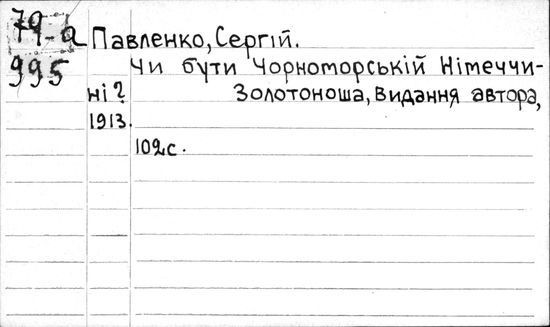 79-а
995
Павленко, Сергій.
Чи бути Чорноморській Німеччи-
ні? Золотоноша, видання автора,
1913.
102 с.